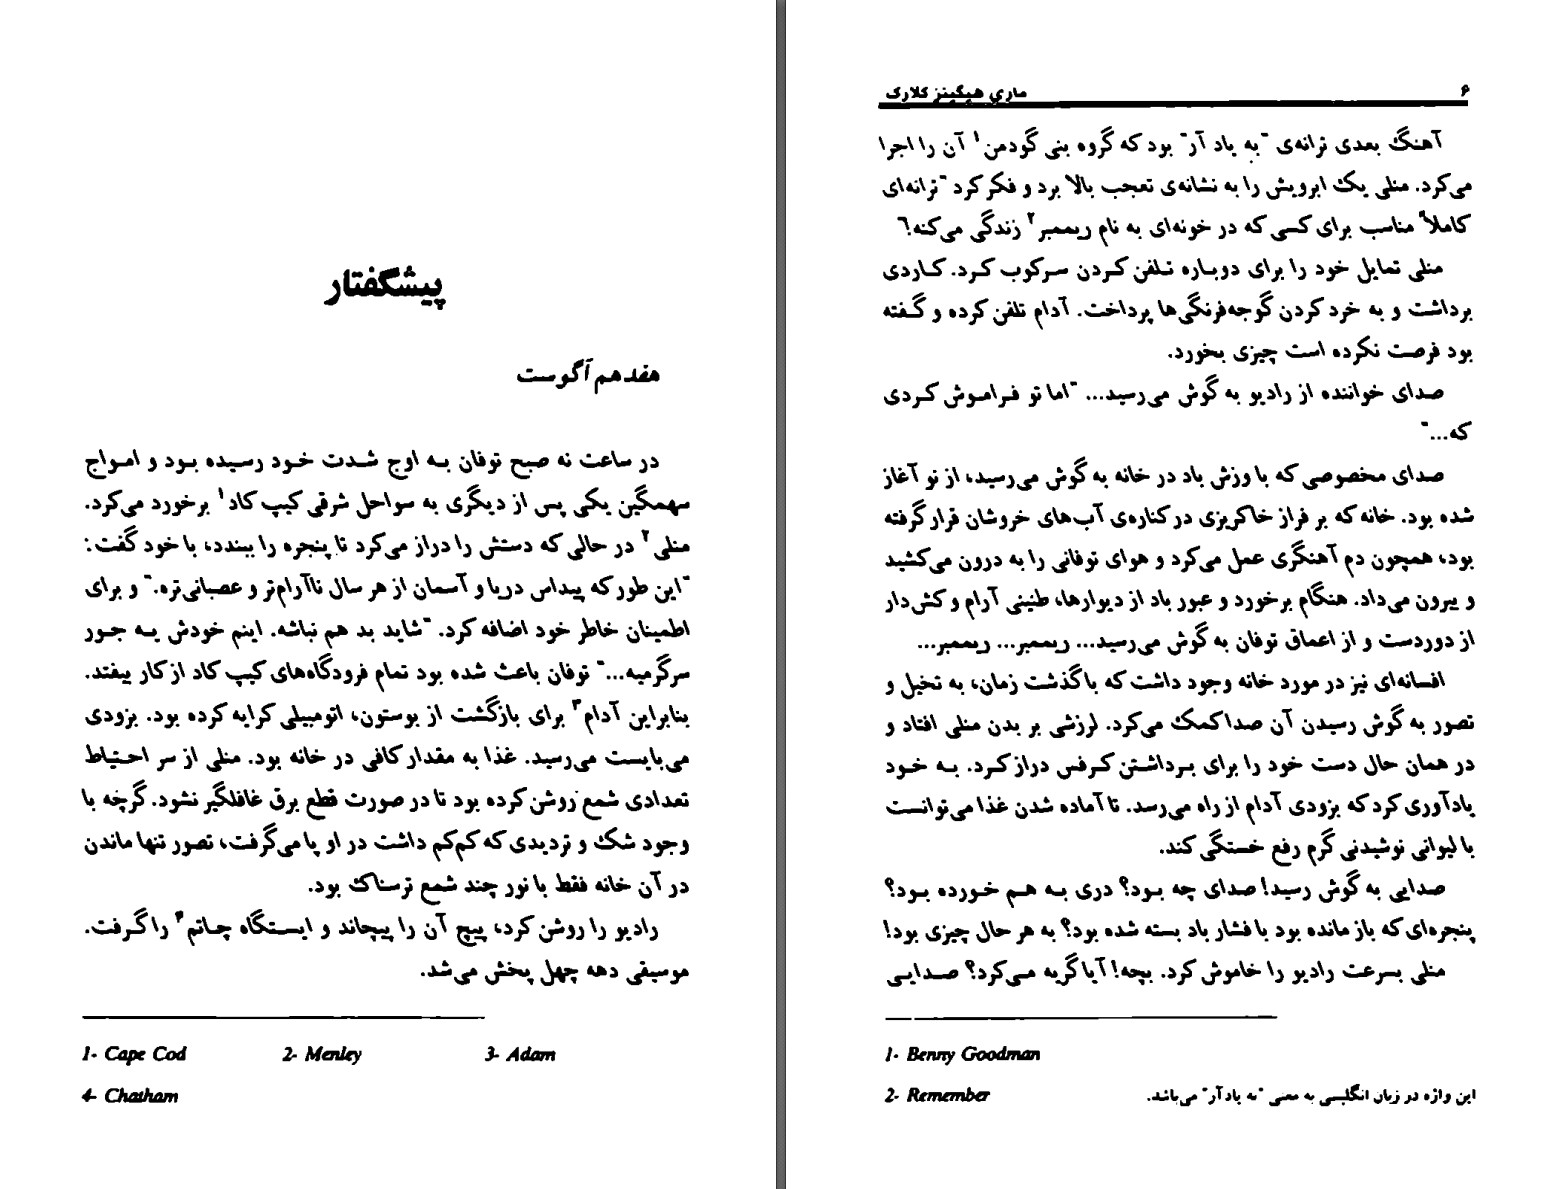 پیشگفتار
هفدهم آگوست
در ساعت نه صبح توفان بـه اوج شـدت خـود رسیده بـود و امـواج
سهمگین یکی پس از دیگری به سواحل شرقی کیپ کاد۱ برخورد می‌کرد.
منلی۲ در حالی که دستش را دراز می‌کرد تا پنجره را ببندد، با خود گفت:
"این طور که پیداس دریا و آسمان از هر سال ناآرام‌تر و عصبانی‌تره." و برای
اطمینان خاطر خود اضافه کرد. "شاید بد هم نباشه. اینم خودش یـه جـور
سرگرمیه..." توفان باعث شده بود تمام فرودگاه‌های کیپ کاد از کار بیفتد.
بنابراین آدام۳ برای بازگشت از بوستون، اتومبیلی کرایه کرده بود. بزودی
می‌بایست می‌رسید. غذا به مقدار کافی در خانه بود. منلی از سر احـتیاط
تعدادی شمع روشن کرده بود تا در صورت قطع برق غافلگیر نشود. گرچه با
وجود شک و تردیدی که کم‌کم داشت در او پا می‌گرفت، تصور تنها ماندن
در آن خانه فقط با نور چند شمع ترسناک بود.
رادیو را روشن کرد، پیچ آن را پیچاند و ایسـتگاه چـاتم۴ را گـرفت.
موسیقی دهه چهل پخش می‌شد.
1- Cape Cod 2- Menley 3- Adam
4- Chatham
۶ ماری هیگینز کلارک
آهنگ بعدی ترانه‌ی "به یاد آر" بود که گروه بنی گودمن۱ آن را اجرا
می‌کرد. منلی یک ابرویش را به نشانه‌ی تعجب بالا برد و فکر کرد "ترانه‌ای
کاملاً مناسب برای کسی که در خونه‌ای به نام ریممبر۲ زندگی می‌کنه!"
منلی تمایل خود را برای دوبـاره تـلفن کـردن سـرکوب کـرد. کـاردی
برداشت و به خرد کردن گوجه‌فرنگی‌ها پرداخت. آدام تلفن کرده و گـفته
بود فرصت نکرده است چیزی بخورد.
صدای خواننده از رادیو به گوش می‌رسید... "اما تو فـرامـوش کـردی
که..."
صدای مخصوصی که با وزش باد در خانه به گوش می‌رسید، از نو آغاز
شده بود. خانه که بر فراز خاکریزی در کناره‌ی آب‌های خروشان قرار گرفته
بود، همچون دم آهنگری عمل می‌کرد و هوای توفانی را به درون می‌کشید
و بیرون می‌داد. هنگام برخورد و عبور باد از دیوارها، طنینی آرام و کش‌دار
از دوردست و از اعماق توفان به گوش می‌رسید... ریممبر... ریممبر...
افسانه‌ای نیز در مورد خانه وجود داشت که با گذشت زمان، به تخیل و
تصور به گوش رسیدن آن صدا کمک می‌کرد. لرزشی بر بدن منلی افتاد و
در همان حال دست خود را برای بـرداشـتن کـرفس دراز کـرد. بـه خـود
یادآوری کرد که بزودی آدام از راه می‌رسد. تا آماده شدن غذا می‌توانست
با لیوانی نوشیدنی گرم رفع خستگی کند.
صدایی به گوش رسید! صدای چه بـود؟ دری بـه هـم خـورده بـود؟
پنجره‌ای که باز مانده بود با فشار باد بسته شده بود؟ به هر حال چیزی بود!
منلی بسرعت رادیو را خاموش کرد. بچه! آیا گریه مـی‌کرد؟ صـدایـی
1- Benny Goodman
2- Remember این واژه در زبان انگلیسی به معنی "به یاد آر" می‌باشد.